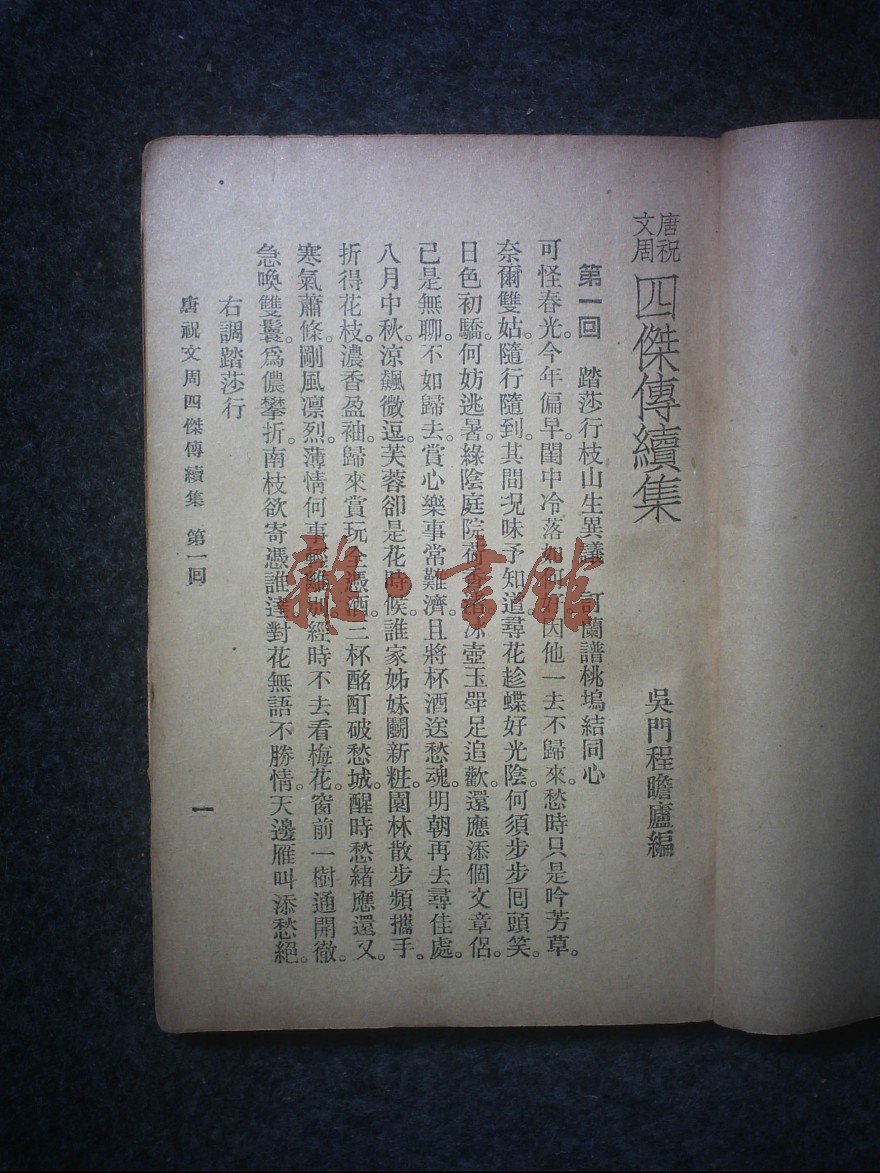 唐祝文周四傑傳續集 吳門程瞻廬編
第一回 踏莎行枝山生異議 訂蘭譜桃塢結同心
可怪春光。今年偏早。閨中冷落如何好。因他一去不歸來。愁時只是吟芳草。
奈爾雙姑。隨行隨到。其間況味予知道。尋花趁蝶好光陰。何須步步囘頭笑。
日色初驕。何妨逃暑。綠陰庭院荷香渚。冰壺玉斝足追歡。還應添個文章侶。
已是無聊。不如歸去。賞心樂事常難濟。且將杯酒送愁魂。明朝再去尋佳處。
八月中秋。涼飆微逗。芙蓉卻是花時候。誰家姊妹鬭新粧。園林散步頻攜手。
折得花枝。濃香盈袖。歸來賞玩全憑酒。三杯酩酊破愁城。醒時愁緒應還又。
寒氣蕭條。剛風凛烈。薄情何事輕離別。經時不去看梅花。窗前一樹通開徹。
急喚雙鬟。爲儂攀折。南枝欲寄憑誰達。對花無語不勝情。天邊雁叫添愁絕。
右調踏莎行
唐祝文周四傑傳續集 第一回 一
雜·書館